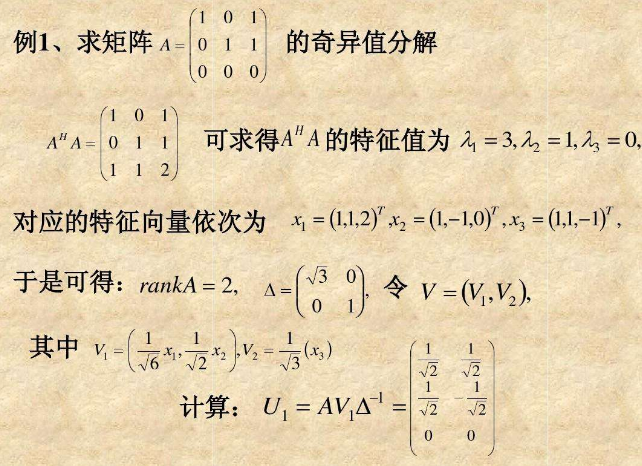 例1、求矩阵 A = \begin{pmatrix} 1 & 0 & 1 \\ 0 & 1 & 1 \\ 0 & 0 & 0 \end{pmatrix} 的奇异值分解
A^H A = \begin{pmatrix} 1 & 0 & 1 \\ 0 & 1 & 1 \\ 1 & 1 & 2 \end{pmatrix} 可求得 A^H A 的特征值为 λ₁ = 3, λ₂ = 1, λ₃ = 0,
对应的特征向量依次为 x₁ = (1,1,2)^T, x₂ = (1,-1,0)^T, x₃ = (1,1,-1)^T,
于是可得：rankA = 2, Δ = \begin{pmatrix} \sqrt{3} & 0 \\ 0 & 1 \end{pmatrix}, 令 V = (V₁, V₂),
其中 V₁ = \left( \frac{1}{\sqrt{6}} x₁, \frac{1}{\sqrt{2}} x₂ \right), V₂ = \frac{1}{\sqrt{3}} (x₃)
计算： U₁ = AV₁Δ^{-1} = \begin{pmatrix} \frac{1}{\sqrt{2}} & \frac{1}{\sqrt{2}} \\ \frac{1}{\sqrt{2}} & -\frac{1}{\sqrt{2}} \\ 0 & 0 \end{pmatrix}